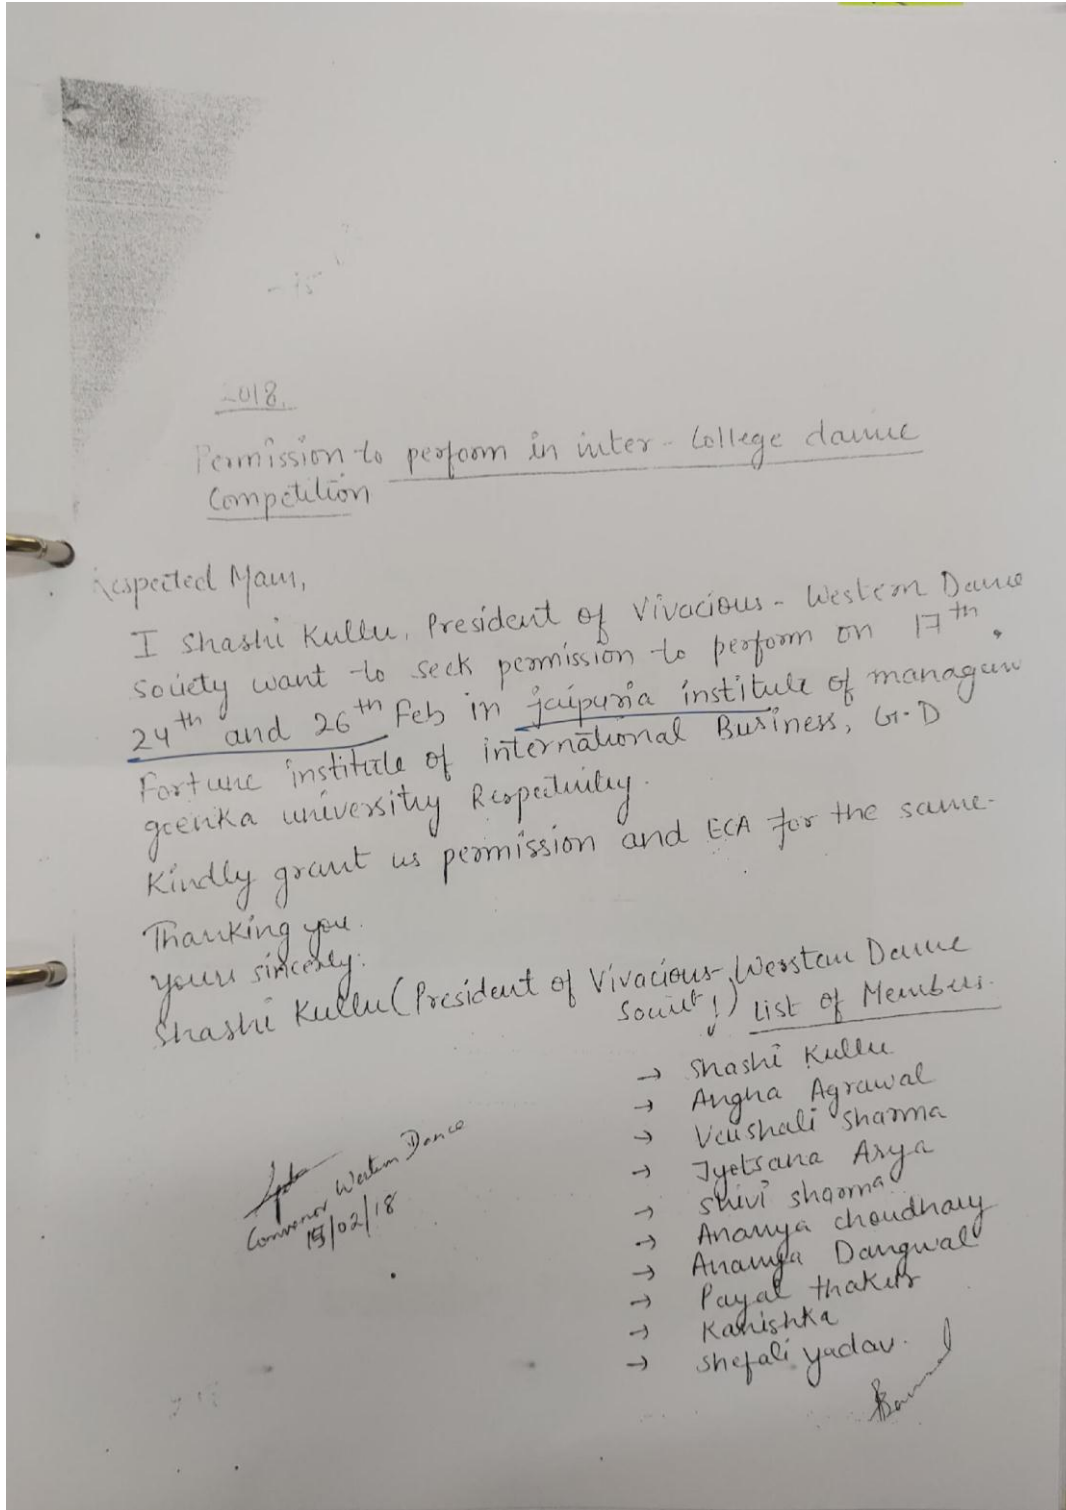 2018.
Permission to perform in inter-College dance
Competition
Respected Mam,
I Shashi Kullu, President of Vivacious - Western Dance
Society want to seek permission to perform on 17th,
24th and 26th Feb in jaipuria institute of managem
Fortune institute of international Business, G.D
goenka university Respectivley.
Kindly grant us permission and ECA for the same.
Thanking you.
Yours sincerly.
Shashi Kullu (President of Vivacious - Werstern Dance
Society)
List of Members.
→ Shashi Kullu
→ Angha Agrawal
→ Vaishali Sharma
→ Jyotsana Arya
→ Shivi sharma
→ Ananya choudhary
→ Ananya Dangwal
→ Payal thakur
→ Kanishka
→ Shefali yadav.
Convenor Western Dance
15/02/18